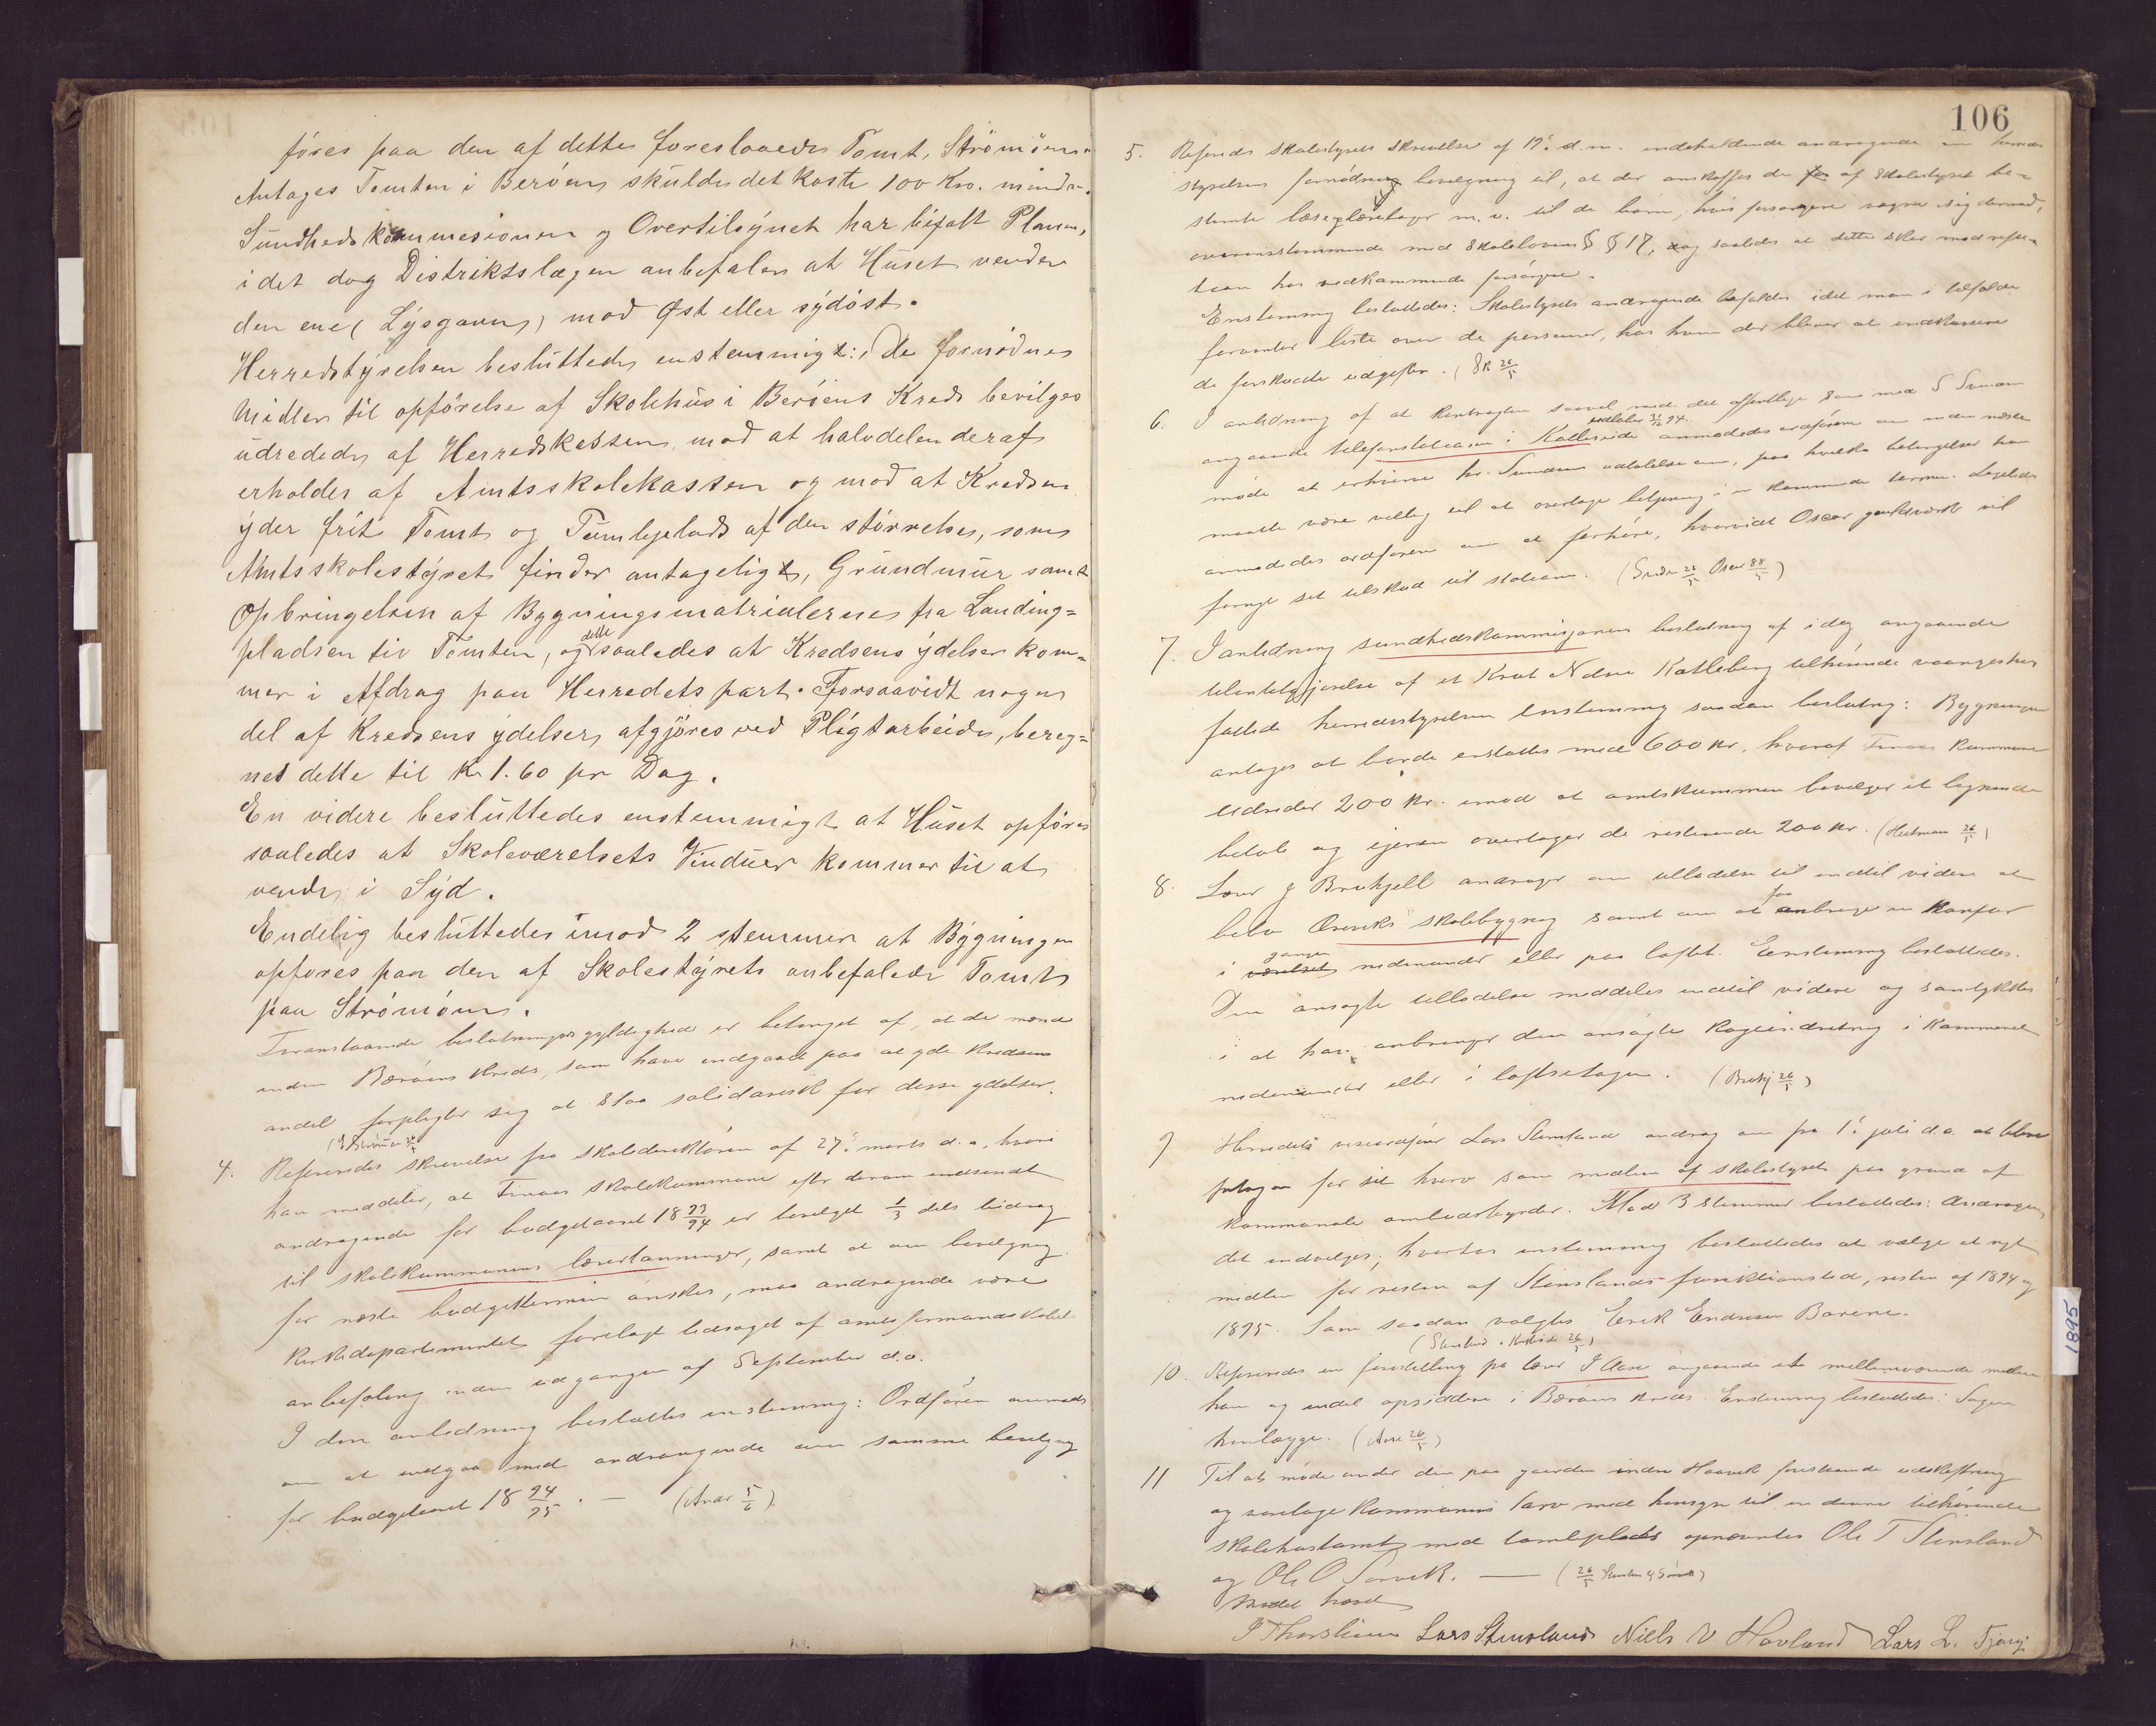 föres paa den af dette foreslaaede Tomt, Strömöen.
Antages Tomten i Beröen skulde det koste 100 Kro. mindre.
Sundhedskommesionen og Overtilsynet har bifalt Planen,
idet dog Distriktslægen anbefaler at Huset vender
den ene (Lysgavn) mod Øst eller sydöst.
Herredstyrelsen besluttede enstemmigt: De fornödne
Midler til opförelse af Skolehus i Beröens Kreds bevilges
udrededes af Herredskassen, mod at halvdelen deraf
erholdes af Amtsskolekassen og mod at Kredsen
yder frit Tomt og Tumleplads af den störrelse, som
Amtsskolestyret finder antageligt, Grundmur samt
Opbringelsen af Bygningsmatrialerne fra Landing=
pladsen til Tomten, og dette saaledes at Kredsens ydelser kom=
mer i Afdrag paa Herredets part. Forsaavidt nogen
del af Kredsens ydelser afgjöres ved Pligtarbeide, bereg=
nes dette til Kr 1.60 pr Dag.
En videre besluttedes enstemmigt at Huset opföres
saaledes at Skoleværelsets Vinduer kommer til at
vende i Syd.
Endelig besluttedes imod 2 stemmer at Bygningen
opföres paa den af Skolestyrets anbefalede Tomt
paa Strömöen.
Foranstaaende beslutnings gyldighed er betinget af, at de mænd
inden Beröens Kreds, som have indgaaet paa at yde Kredsens
andel forpligter sig at staa solidarisk for disse ydelser.
4. Refereredes skrivelse fra skoledirektören af 27. marts d.a., hvori
han meddeler, at Finaas skolekommune efter derom indsendt
andragende for budgetaaret 18 93/94 er bevilget 1/3 dels bidrag
til skolekommunens lærerlönninger, samt at om bevilgning
for næste budgettermin önskes, maa andragende være
Kirkedepartementet forelagt ledsaget af amtsformandskabets
anbefaling inden udgangen af September d.a.
I den anledning besluttes enstemmig: Ordföreren anmodes
om at indgaa med andragende om samme bevilgning
for budgetaaret 18 94/95. — (5/6)
106
5. Refereredes skolestyrets skrivelse af 19. d.m. indeholdende andragende om herreds
styrelsens fornödne bevilgning til, at der anskaffes de af skolestyret be=
stemte læse og læreböger m.v. til de börn, hvis forsörgere vægrer sig dermed,
overensstemmende med skolelovens § 17, dog saaledes at dette sker mod refu=
sion hos vedkommende forsörgere.
Enstemmig besluttedes: Skolestyrets andragende bifaldes idet man i tilfælde
forventer liste over de personer, hos hvem der bliver at indkassere
de forskudte udgifter. (26/5)
6. I anledning af at kontrakten saavel med det offentlige som med S Svensen
angaaende telefonstationen i Kalleseide udlöber 94. anmodedes ordföreren om inden næste
möde at erhverve hr. Svensens udtalelse om, paa hvilke betingelser han
maatte være villig til at overtage betjening i en kommende termin. Ligeledes
anmodedes ordföreren om at forhöre, hvorvidt Oscar guldværk vil
forny sit tilskud til stationen. (26/5 Oscar 28/5)
7. I anledning sundhedskommisjonens beslutning af idag angaaende
tilintetgjörelse af et Knut Nilsen Katleberg tilhörende vaaningshus
fattede herredsstyrelsen enstemmig saadan beslutning: Bygningen
antages at burde erstattes med 600 Kr. hvoraf Finaas kommune
udreder 200 Kr. imod at amtskommunen bevilger et lignende
belöb og eieren overtager de resterende 200 Kr. (26/5)
8. Lærer J Brekjell andrager om tilladelse til indtil videre at
bebo skolebygning samt om at faa anbragt en komfur
i gangen nedenunder eller paa loftet. Enstemmig besluttedes.
Den ansögte tilladelse meddeles indtil videre og samtykkes
i at han anbringer den ansögte kogeindretning i kammeret
nedenunder eller i loftsetagen. (Brekj 26/5)
9 Herredets viceordförer Lars Stensland androg om fra 1. juli d.a. at blive
fritagen for sit hverv som medlem af skolestyret paa grund af
kommunale ombudsbyrder. Mod 3 stemmer besluttedes: Andragen=
det indvilges, hvorpaa enstemmig besluttedes at vælge et nyt
medlem for resten af Stenslands funktionstid, resten af 1894 og
1895. Som saadan valgtes Erik Endresen Borene.
10. Refereredes en forestilling fra lærer I Aase angaaende et mellemværende mellem
ham og endel opsiddere i Beröens Kreds. Enstemmig besluttedes: Sagen
henlægges. (Aase 26/5)
11 Til at möde under den paa gaarden indre Haavik forestaaende udskiftning
og varetage Kommunens tarv med hensyn til en denne tilhörende
skolehustomt med tumleplads opnævntes Ole T Stensland
og Ole O Sörvik. — (26/5)
Mödet hævet
J Thorsheim Lars Stensland Niels V Hovland Lars L.
1895